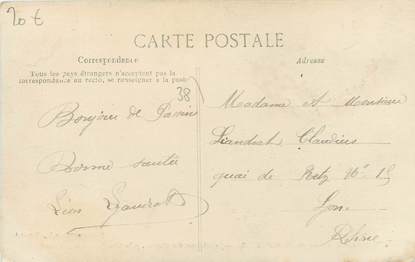 20 €
CARTE POSTALE
Correspondance
Tous les pays étrangers n'acceptent pas la
correspondance au recto, se renseigner à la poste
Adresse
38
Bonjour de
Bonne santé
Léon
Madame et Monsieur
Claudius
quai de Retz N° 15
Lyon
Rhône